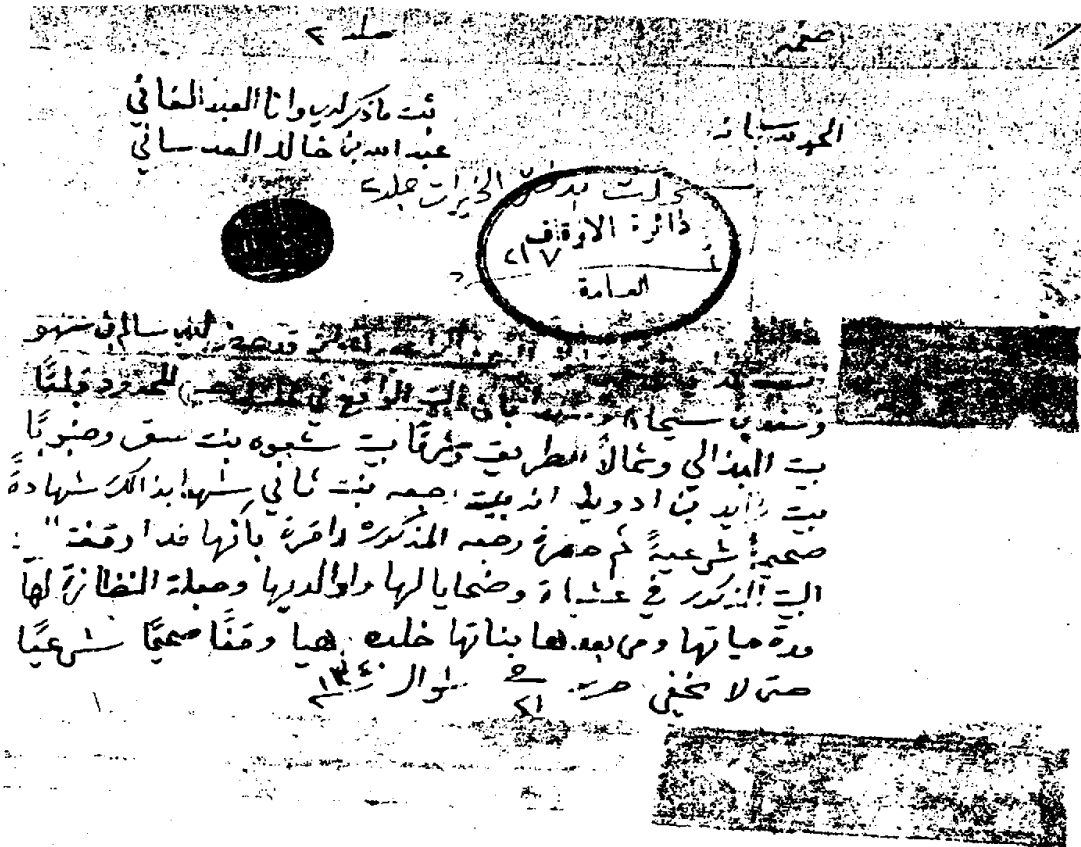 صفحة جلد ٢
الحمد لله سبحانه
ثبت ما ذكر لدي وانا العبد الفاني
عبد الله بن خالد العدساني
سجلت بدفتر الخيرات جلد ٢
دائرة الاوقاف
٢١٧
العامة
قد حضر لدي سالم بن
وسعد بن في البيت الواقع في المحدود قبلتًا
بيت العبدالي وشمالًا الطريق وشرقًا بيت شعوه بنت سيف وجنوبًا
بيت زايد بن ادويله انه بيت رجعه بنت ثاني شهدا بذالك شهادة
صحيحة شرعية ثم حضرة رجعه المذكورة واقرة بأنها قد اوقفت
البيت المذكور في عشيات وضحايا لها ولوالديها وجعلة النظارة لها
مدة حياتها ومن بعدها بناتها هيا وقفًا صحيحًا شرعيًا
حتى لا يخفى حرر في ٢١ شوال ١٣٤٠